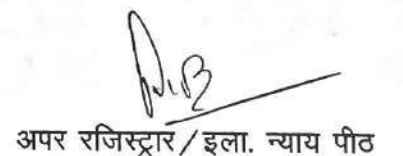 अपर रजिस्ट्रार/इला. न्याय पीठ